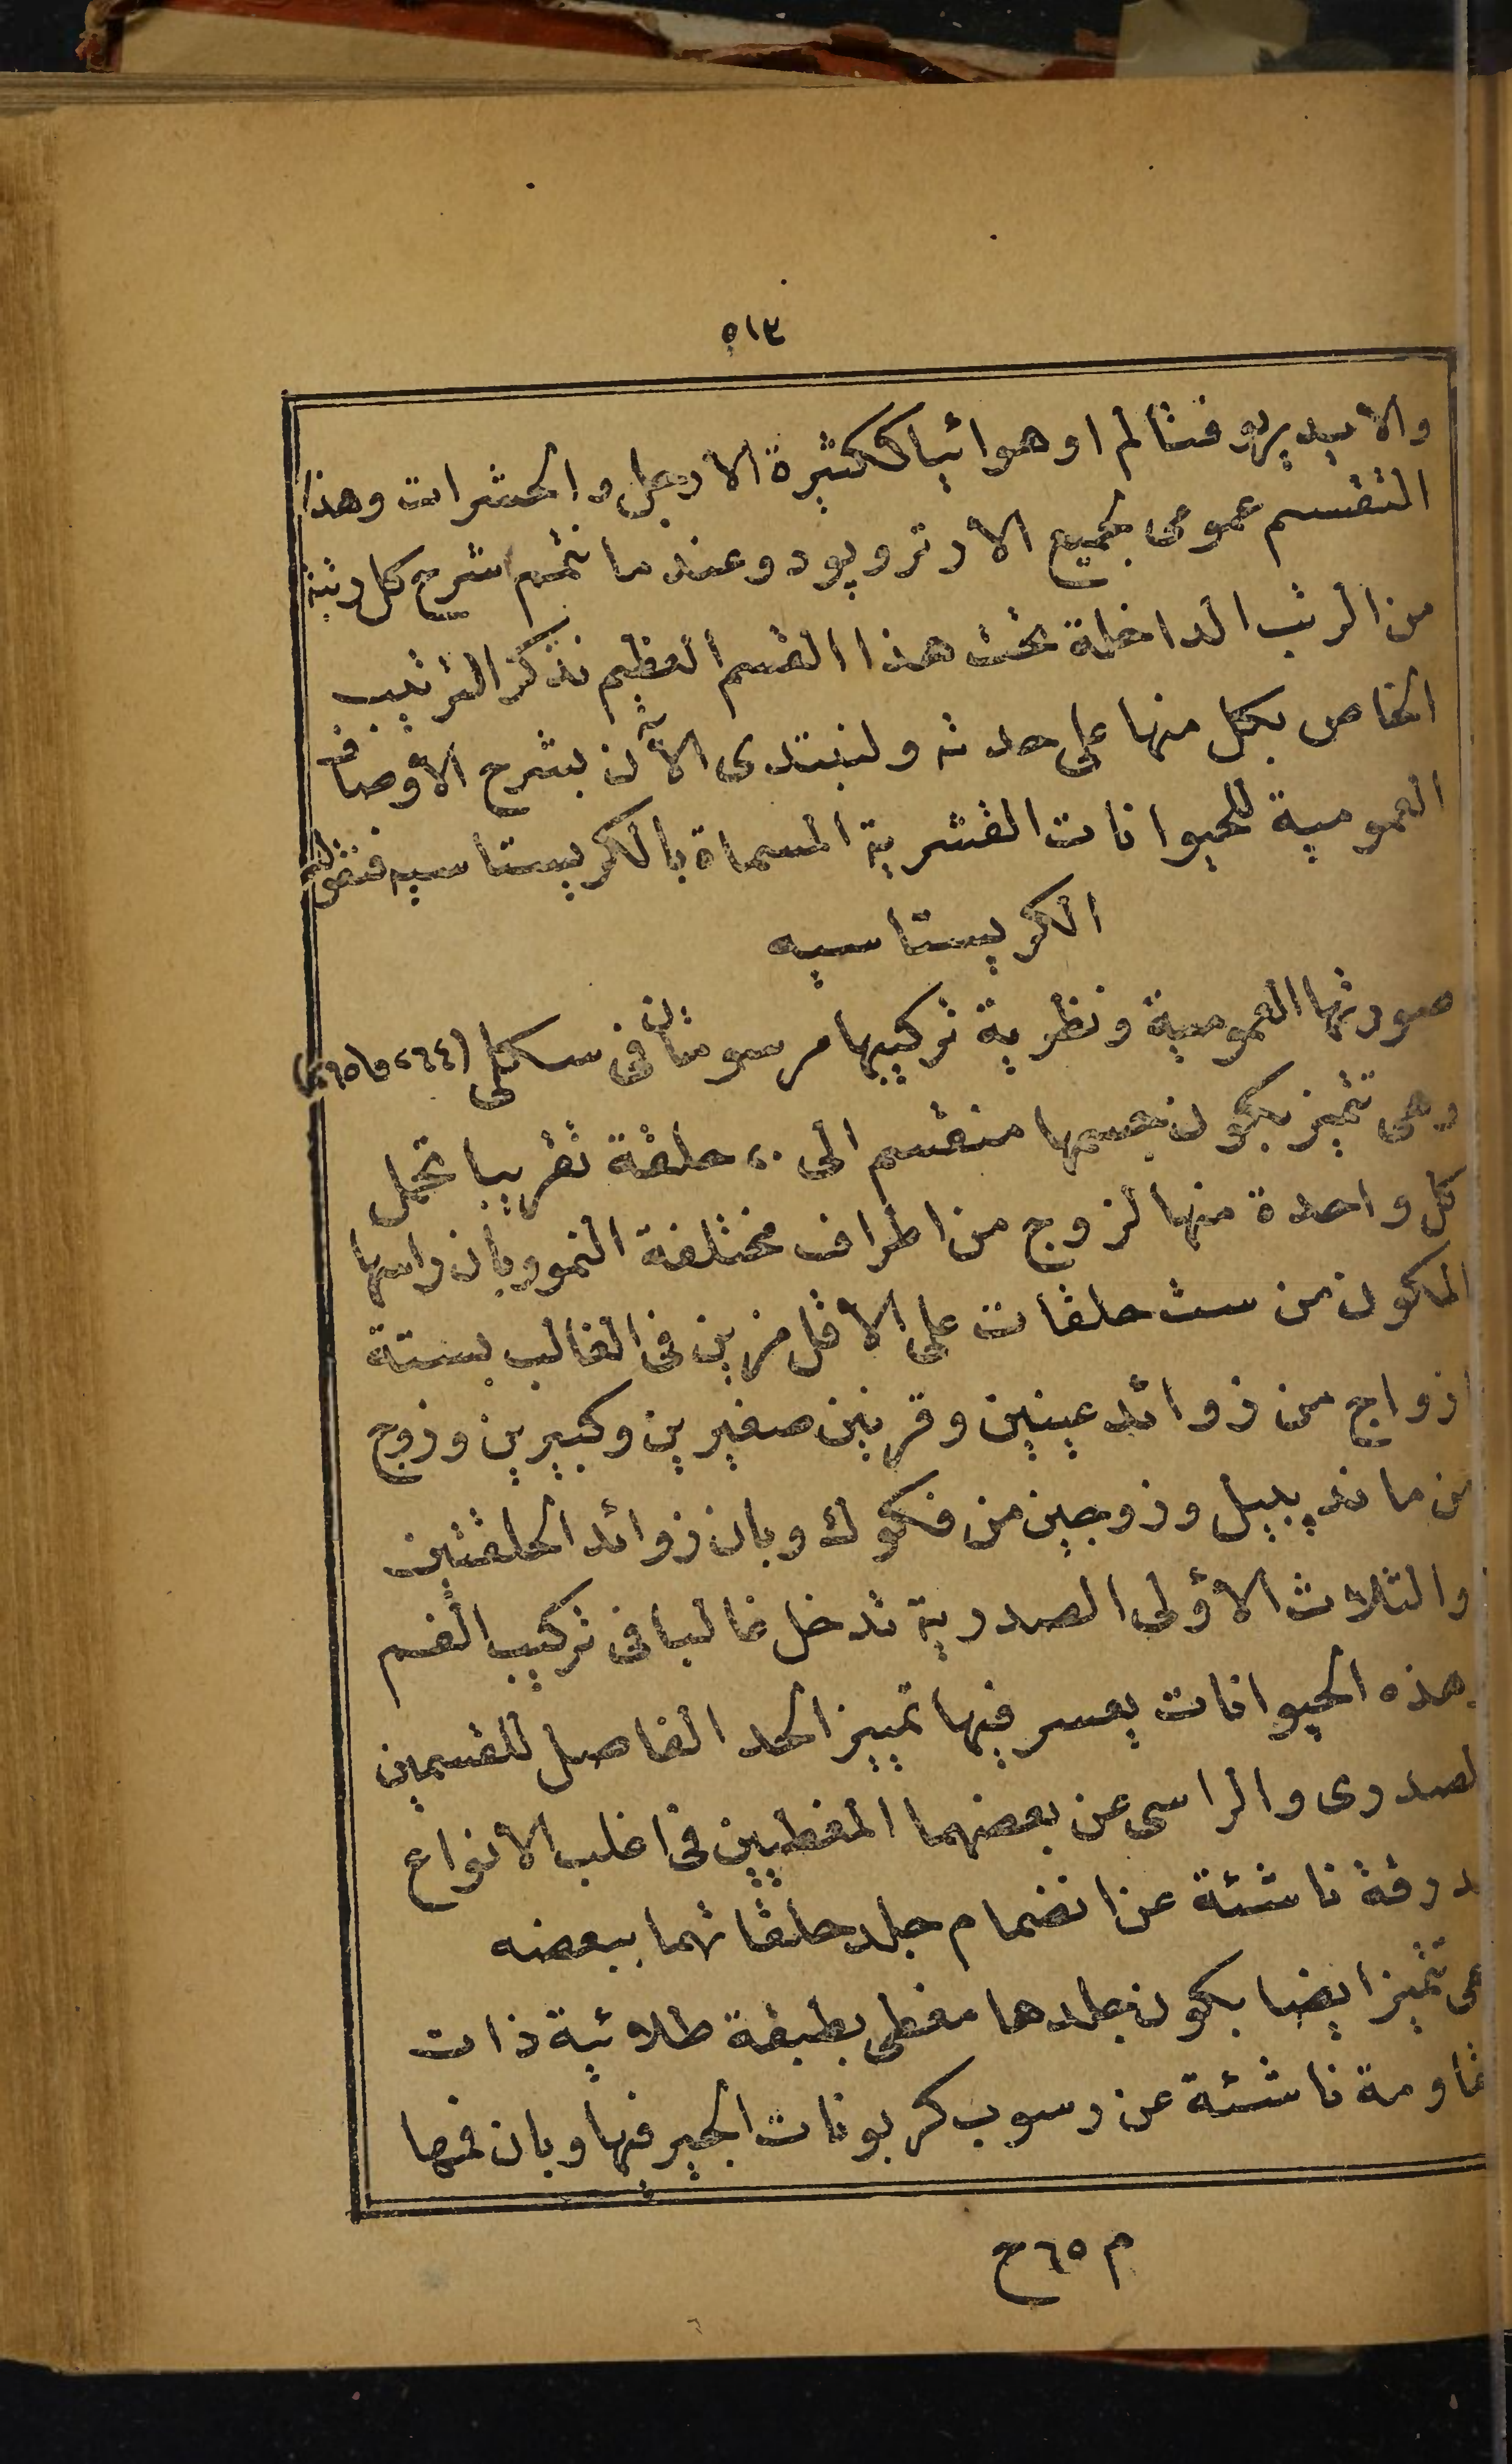 ٥١٣
والابيد يهو فثالم او هوائيا ككثيرة الارجل والحشرات وهذا
التقسيم عمومى بجميع الارتروپود وعند ما نتمم شرح كل رتبة
من الرتب الداخلة تحت هذا القسم العظيم نذكر الترتيب
الخاص بكل منها على حدته ولنبتدى الآن بشرح الأوصاف
العمومية للحيوانات القشرية المسماة بالكريستاسيه فنقول
الكريستاسيه
صورتها العمومية ونظرية تركيبها مرسومتان فى شكلى (٢٦٤ و٢٦٥)
وهى تتميز بكون جسمها منقسم الى ٢٠ حلقة تقريبا تحمل
كل واحدة منها لزوج من اطراف مختلفة النمو وبان راسها
المكون من ست حلقات على الاقل مزين فى الغالب بستة
ازواج من زوائد عينين وقرنين صغيرين وكبيرين وزوج
من ماندبيل وزوجين من فكوك وبان زوائد الحلقتين
والثلاث الأولى الصدرية تدخل غالبا فى تركيب الفم
وهذه الحيوانات يعسر فيها تمييز الحد الفاصل للقسمين
لصدرى والراسى عن بعضهما المغطيين فى اغلب الانواع
بدرقة ناشئة عن انضمام جلد حلقاتهما ببعضه
هى تتميز ايضا بكون جلدها مغطى بطبقة طلائية ذات
مقاومة ناشئة عن رسوب كربونات الجير فيها وبان فمها
م ٦٥ ح